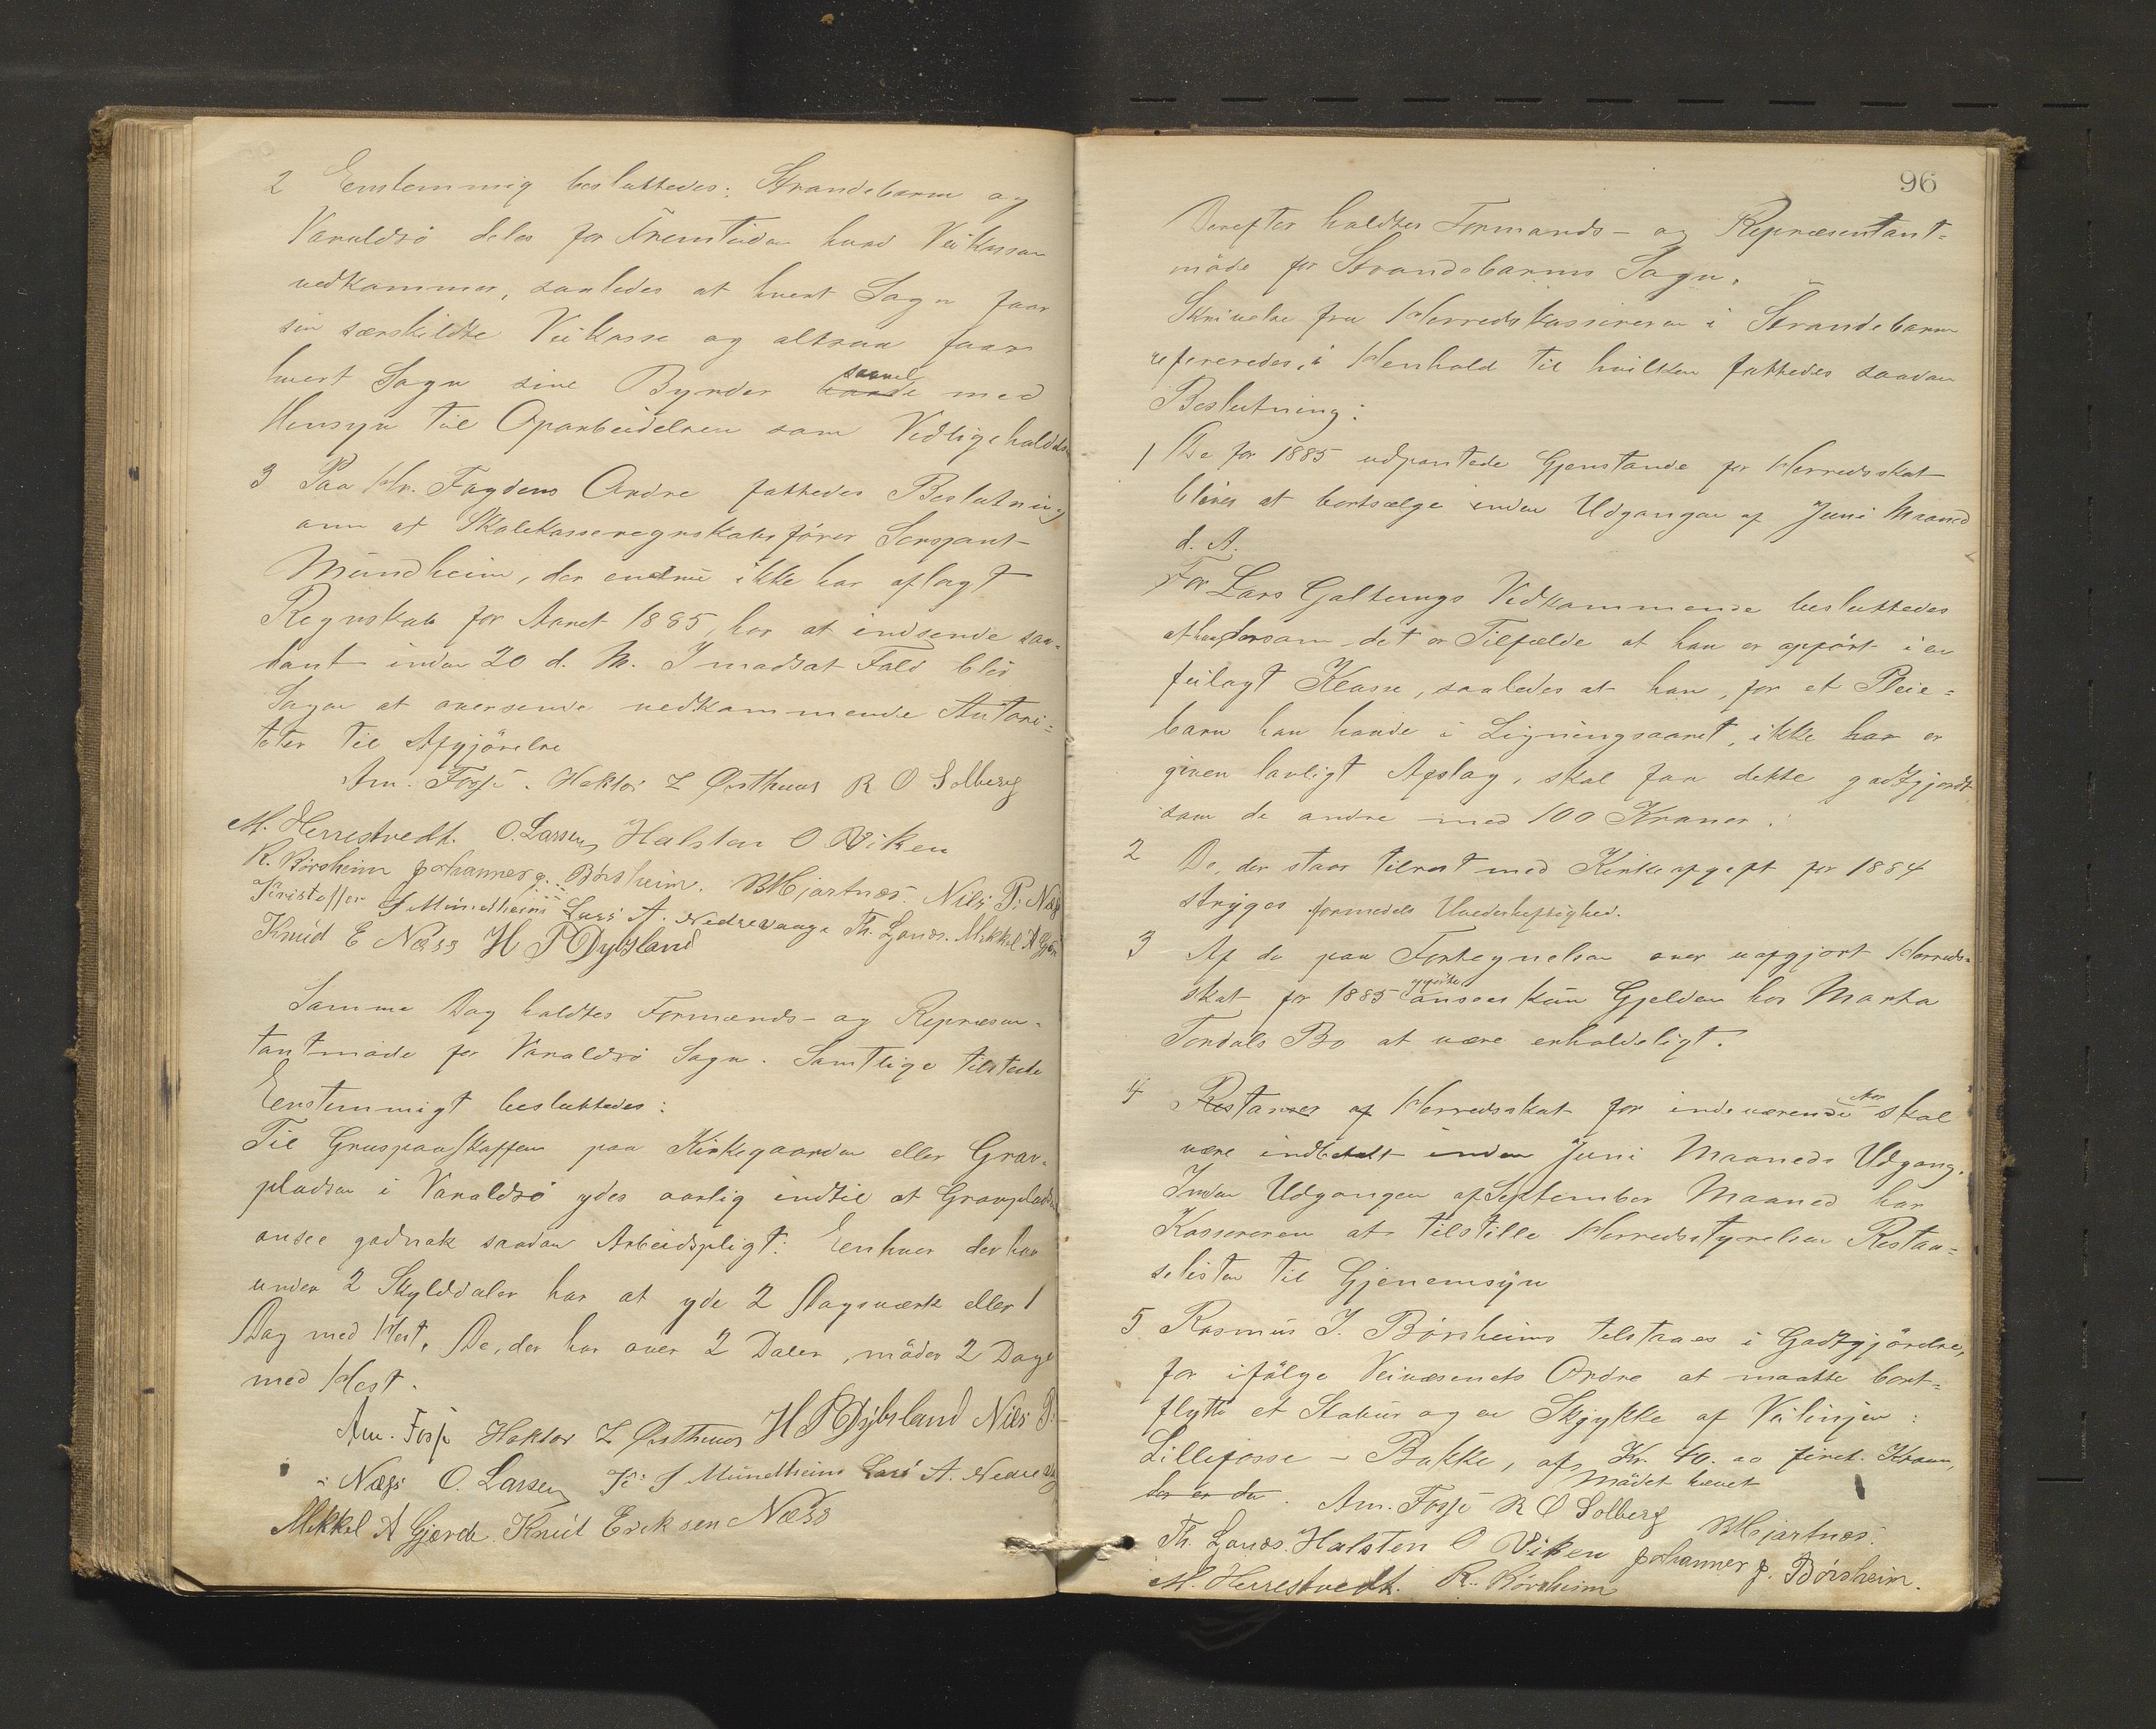 2 Eenstemmig besluttedes: Strandebarm og
Varaldsö deles for Fremtiden hvad Veikassen
vedkommer, saaledes at hvert Sogn faar
sin særskildte Veikasse og altsaa faar
hvert Sogn sine Byrder baade saavel med
Hensyn til Oparbeidelsen som Vedligeholdelsen
3 Paa Hr. Fogdens Ordre fattedes Beslutning
om at Skolekasseregnskabsförer Sersjant
Mundheim, der endnu ikke har aflagt
Regnskab for Aaret 1885, har at indsende saa-
dant inden 20 d. M. I modsat Fald blir
Sagen at oversende vedkommende Autori=
teter til Afgjörelse
Am. Fosse. Hektor Z Østhuus R O Solberg
M. Herrestvedt. O. Larsen, Halsten O Viken
R. Börsheim Johannes J. Börsheim. Hjartnæs. Nils P. Næss
Kristoffer S Mundheim Lars A. Nedrevaage Th. Ljones. Mikkel A Gjærde
Knud E Næss H P Dybsland
Samme Dag holdtes Formænds- og Repræsen-
tantmöde for Varaldsö Sogn. Samtlige tilstede
Eenstemmigt besluttedes:
Til Gruspaaskaffen paa Kirkegaarden eller Grav-
pladsen i Varaldsö ydes aarlig indtil at Gravpladsen
ansees godnok saadan Arbeidspligt: Eenhver der har
under 2 Skylddaler har at yde 2 Dagsværk eller 1
Dag med Hest. De, der har over 2 Daler, möder 2 Dage
med Hest.
Am. Fosse Hektor Z Østhuus H P Dybsland Nils P.
Næss O. Larsen K. S Mundheim Lars A. Nedrevaage
Mikkel A Gjærde Knud Eriksen Næss
96
Derefter holdtes Formands- og Repræsentant=
möde for Strandebarms Sogn.
Skrivelse fra Herredskassereren i Strandebarm
refereredes, i Henhold til hvilken fattedes saadan
Beslutning:
1 De for 1885 udpantede Gjenstande for Herredsskat
bliver at bortsælge inden Udgangen af Juni Maaned
d. A.
For Lars Galtungs Vedkommende besluttedes
at han dersom det er Tilfælde at han er opfört i en
feilagt Klasse, saaledes at han, for et Pleie=
barn han havde i Ligningsaaret, ikke har er
given lovligt Afslag, skal faa dette godtgjordt
som de andre med 100 Kroner.
2 De, der staar tilrest med Kirkeafgift for 1884
stryges formedels Uvederheftighed.
3 Af de paa Fortegnelsen over uafgjort Herreds-
skat for 1885 opförte ansees kun Gjelden hos Marta
Tordals Bo at være erholdeligt.
4 Restanser af Herredsskat for indeværende Aar skal
være indbetalt inden Juni Maaneds Udgang.
Inden Udgangen af September Maaned har
Kassereren at tilstille Herredsstyrelsen Restan=
selisten til Gjenemsyn
5 Rasmus J. Börsheim tilstaaes i Godtgjörelse,
for ifölge Veivæsenets Ordre at maatte bort=
flytte et Stabur og en Skjykke af Veilinjen:
Lillefosse - Bakke, af Kr. 40.00 firet. Kroner,
der er du. Mödet hævet
Am. Fosse R O Solberg Hjartnæs.
Th. Ljones. Halsten O Viken Johannes J. Börsheim.
M. Herrestvedt. R. Börsheim